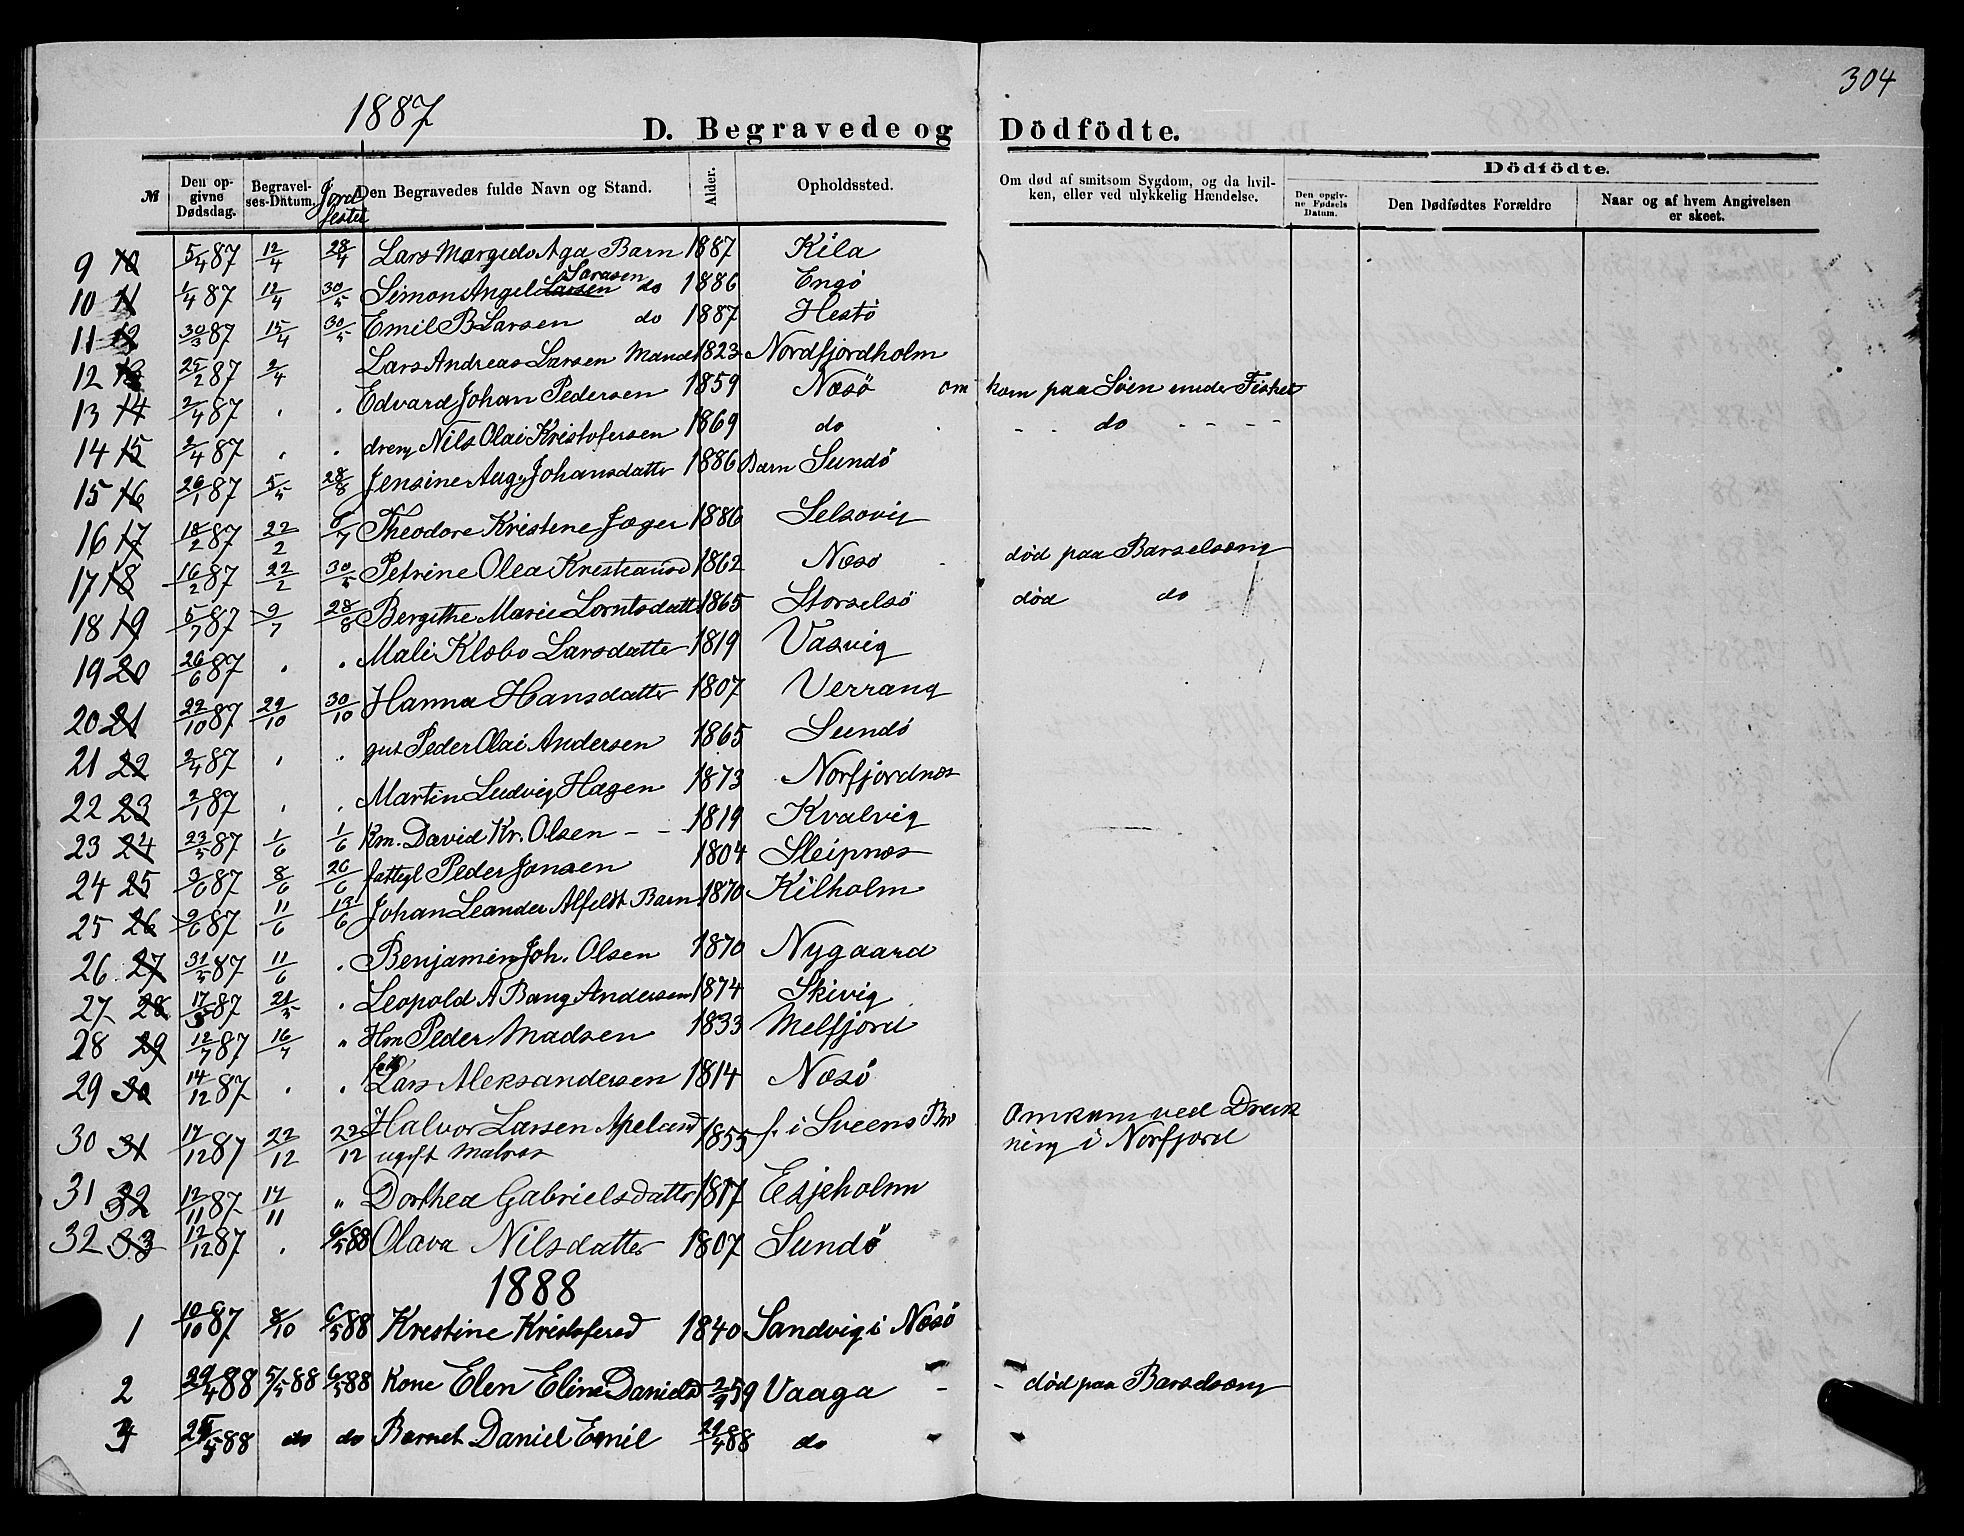 304
1887
D. Begravede og Dödfödte.
№ Den opgivne Dødsdag. Begravelses-Datum. Jordfestet Den Begravedes fulde Navn og Stand. Alder. Opholdssted. Om død af smitsom Sygdom, og da hvilken, eller ved ulykkelig Hændelse. Dödfödte. Den opgivne Fødsels Datum. Den Dødfødtes Forældre Naar og af hvem Angivelsen er skeet.
9 10 5/4 87 12/4 28/4 Lars Margido Aga Barn 1887 Kila
10 11 1/4 87 12/4 30/5 Simon Angel Larsen Sarasen do 1886 Engö
11 12 30/3 87 15/4 30/5 Emil B Larsen do 1887 Hestö
12 13 25/2 87 2/4 Lars Andreas Larsen Mand 1823 Nordfjordholm
13 14 2/4 87 . . Edvard Johan Pedersen 1859 Næsö omkom paa Søen under Fisket
14 15 2/4 87 . . dreng Nils Olai Kristofersen 1869 do - - do - - - -
15 16 26/1 87 5/5 28/8 Jensine Aug. Johansdatter 1886 Barn Sundö
16 17 18/2 87 22/2 /7 Theodore Kristene Jæger 1886 Selsovig
17 18 16/2 87 22/2 30/5 Petrine Olea Kristiansd 1862 Næsö død paa Barselseng
18 19 5/7 87 9/7 28/8 Bergithe Marie Lorntsdatt 1865 Storselsö død do
19 20 26/6 87 . . Mali Klæbo Larsdatter 1819 Vasvig
20 21 22/10 87 29/10 30/10 Hanna Hansdatter 1807 Verrang
21 22 2/4 87 . . gut Peder Olai Andersen 1865 Sundö
22 23 2/1 87 . . Martin Ludvig Hagen 1873 Norfjordnæs
23 24 23/5 87 1/6 1/6 Km. David Kr. Olsen - - 1819 Kvalvig
24 25 3/6 87 8/6 26/6 fattigl Peder Jonsen 1804 Sleipnes
25 26 2/6 87 11/6 13/6 Johan Leander Alfeldt Barn 1870 Kilholm
26 27 31/5 87 11/6 . Benjamin Joh. Olsen 1870 Nygaard
27 28 17/5 87 21/5 . Leopold A Bang Andersen 1874 Skivig
28 29 12/7 87 16/7 " Hm Peder Madsen 1833 Melfjord
29 30 14/12 87 . . Lars Aleksandersen 1814 Næsö
30 31 17/12 87 22/12 22/12 Halvor Larsen Apeland 1855 f. i Sveens Omkom ved Druk
ugift Matros ning i Norfjord
31 32 12/11 87 17/11 " Dorthea Gabrielsdatter 1817 Esjeholm
32 33 12/12 87 . 6/5 88 Olava Nilsdatter 1807 Sundö
1888
1 10/10 87 8/10 6/5 88 Krestine Kristofersd 1840 Sandvig i Næsö
2 29/4 88 5/5 88 6/5 88 Kone Elen Eline Danielsd 2/9 59 Vaaga - - død paa Barselseng
3 88 do do Barnet Daniel Emil 29/4 88 do